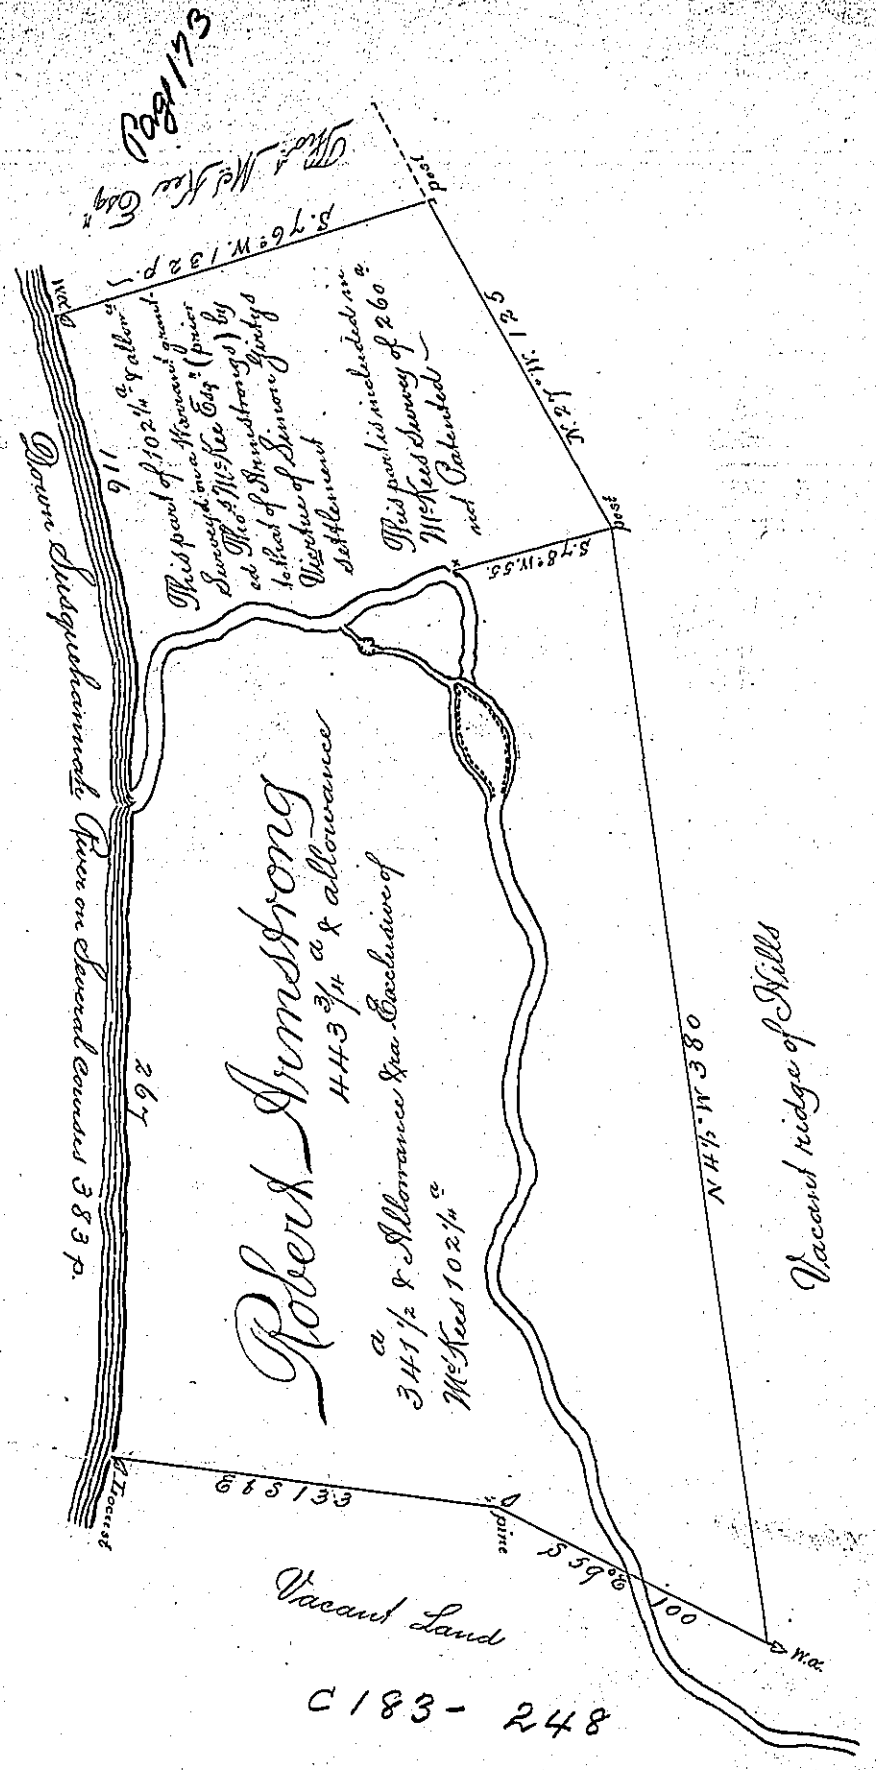 Page 173
Thos. McKee Esqr
S. 76° W. 132 p.
post
N. 27° W. 125
post
S. 78° W. 55
w.o.
116
This part of 102 1/4 a & allowe
Survey'd on a Warrant grant-
ed Thos. McKee Esqr (prior
to that of Armstrongs) by
Virtue of Simon Girtys
Settlement
This part is included in
McKees Survey of 260 a
not Patented
Down Susquehannah River on Several Courses 383 p.
267
Robert Armstrong
443 3/4 a & allowance
a
341 1/2 & Allowance Exclusive of
McKees 102 1/4 a
N 4 1/2° W 380
Vacant ridge of Hills
Locust
S 133
pine
100
w.o.
Vacant Land
C 183 - 248